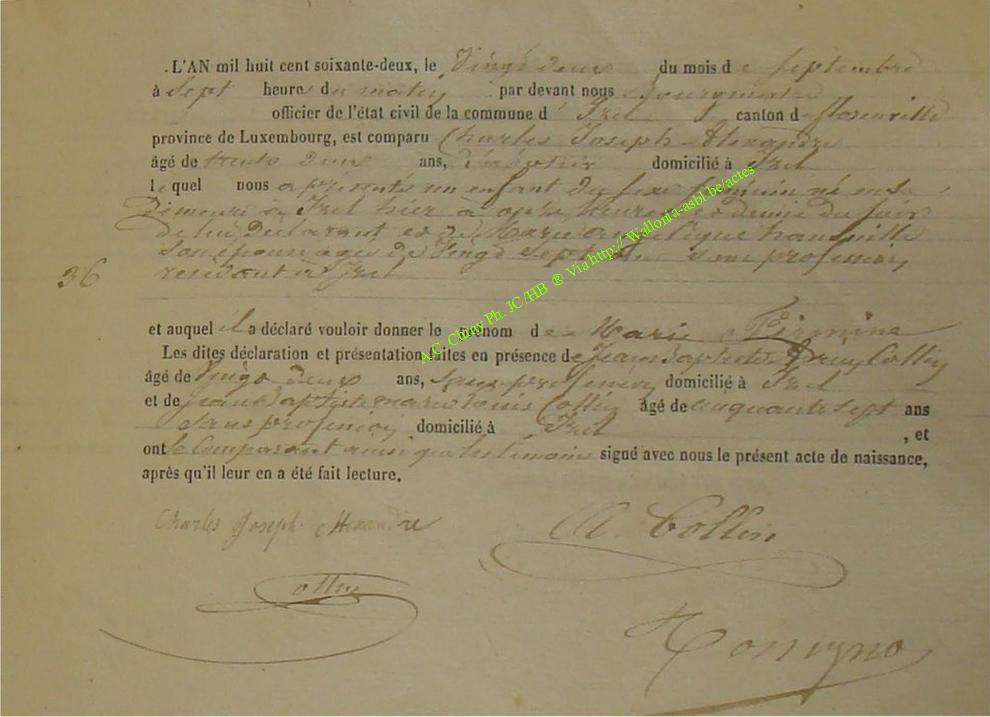 L'AN mil huit cent soixante-deux, le Vingt deux du mois de Septembre
à Sept heures du matin par devant nous Bourgmestre
officier de l'état civil de la commune d'Izel canton de florenville
province de Luxembourg, est comparu Charles Joseph Alexandre
âgé de trente deux ans, domicilié à Izel
lequel nous a présenté un enfant du sexe féminin né en sa
Demeure à Izel hier à onze heures et demie du soir
de lui Déclarant et de Marie Angélique
Son épouse agée de Vingt Sept ans sans profession
résident à Izel
36
et auquel il a déclaré vouloir donner le prénom de Marie Firmine
Les dites déclaration et présentation faites en présence de Jean Baptiste Collin
âgé de Vingt deux ans, Sans profession domicilié à Izel
et de jean Baptiste marie Louis Collin âgé de cinquante sept ans
Sans profession domicilié à Izel , et
ont le Comparant ainsi que les témoins signé avec nous le présent acte de naissance,
après qu'il leur en a été fait lecture.
Charles Joseph Alexandre
A. Collin
Collin
A.C. Chiny Ph. JC/HB ® Via http://Wallonia-asbl.be/actes